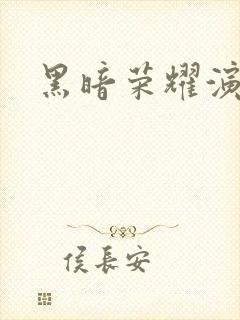 黑暗荣耀演
侯長安